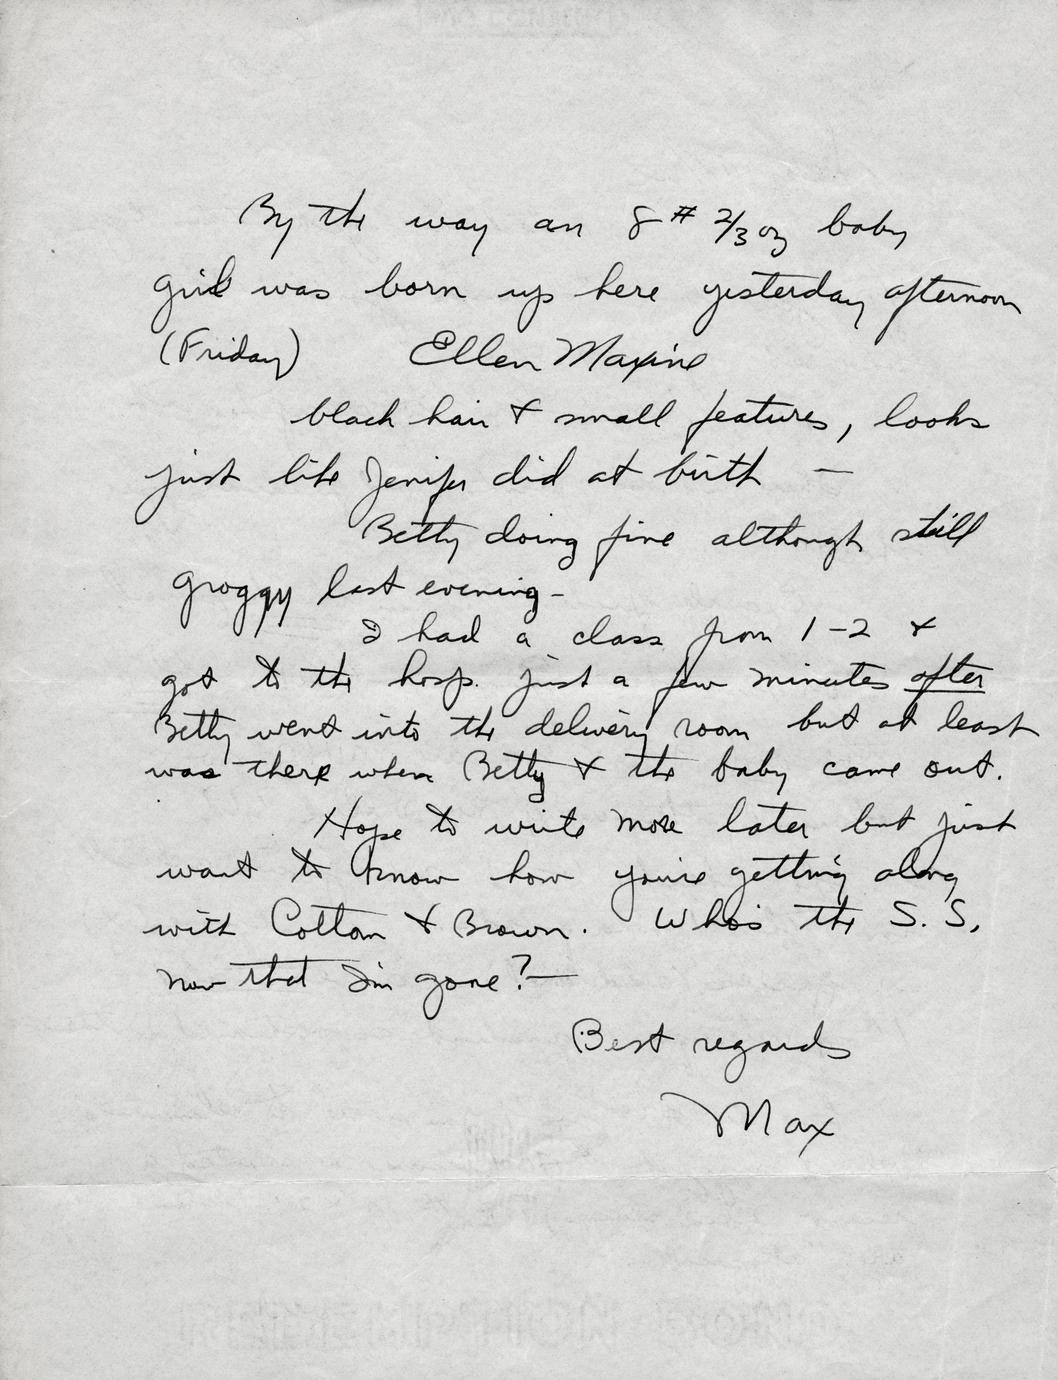 By the way an 8# 2/3 oz baby
girl was born up here yesterday afternoon
(Friday) Ellen Maxine
black hair & small features, looks
just like Jenifer did at birth —
Betty doing fine although still
groggy last evening -
I had a class from 1-2 &
got to the hosp. just a few minutes after
Betty went into the delivery room but at least
was there when Betty & the baby came out.
Hope to write more later but just
want to know how you're getting along
with Cotton & Brown. Who's the S. S.
now that I'm gone? —
Best regards
Max